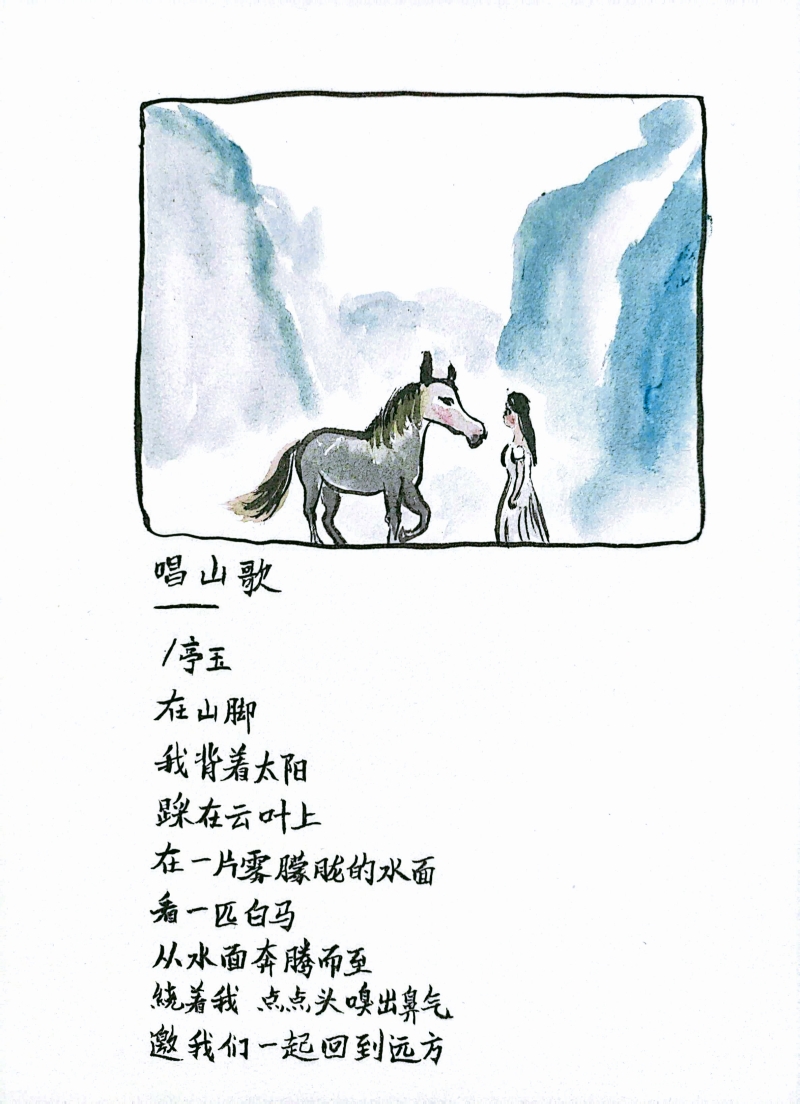 唱山歌
/亭玉
在山脚
我背着太阳
踩在云叶上
在一片雾朦胧的水面
看一匹白马
从水面奔腾而至
绕着我 点点头嗅出鼻气
邀我们一起回到远方